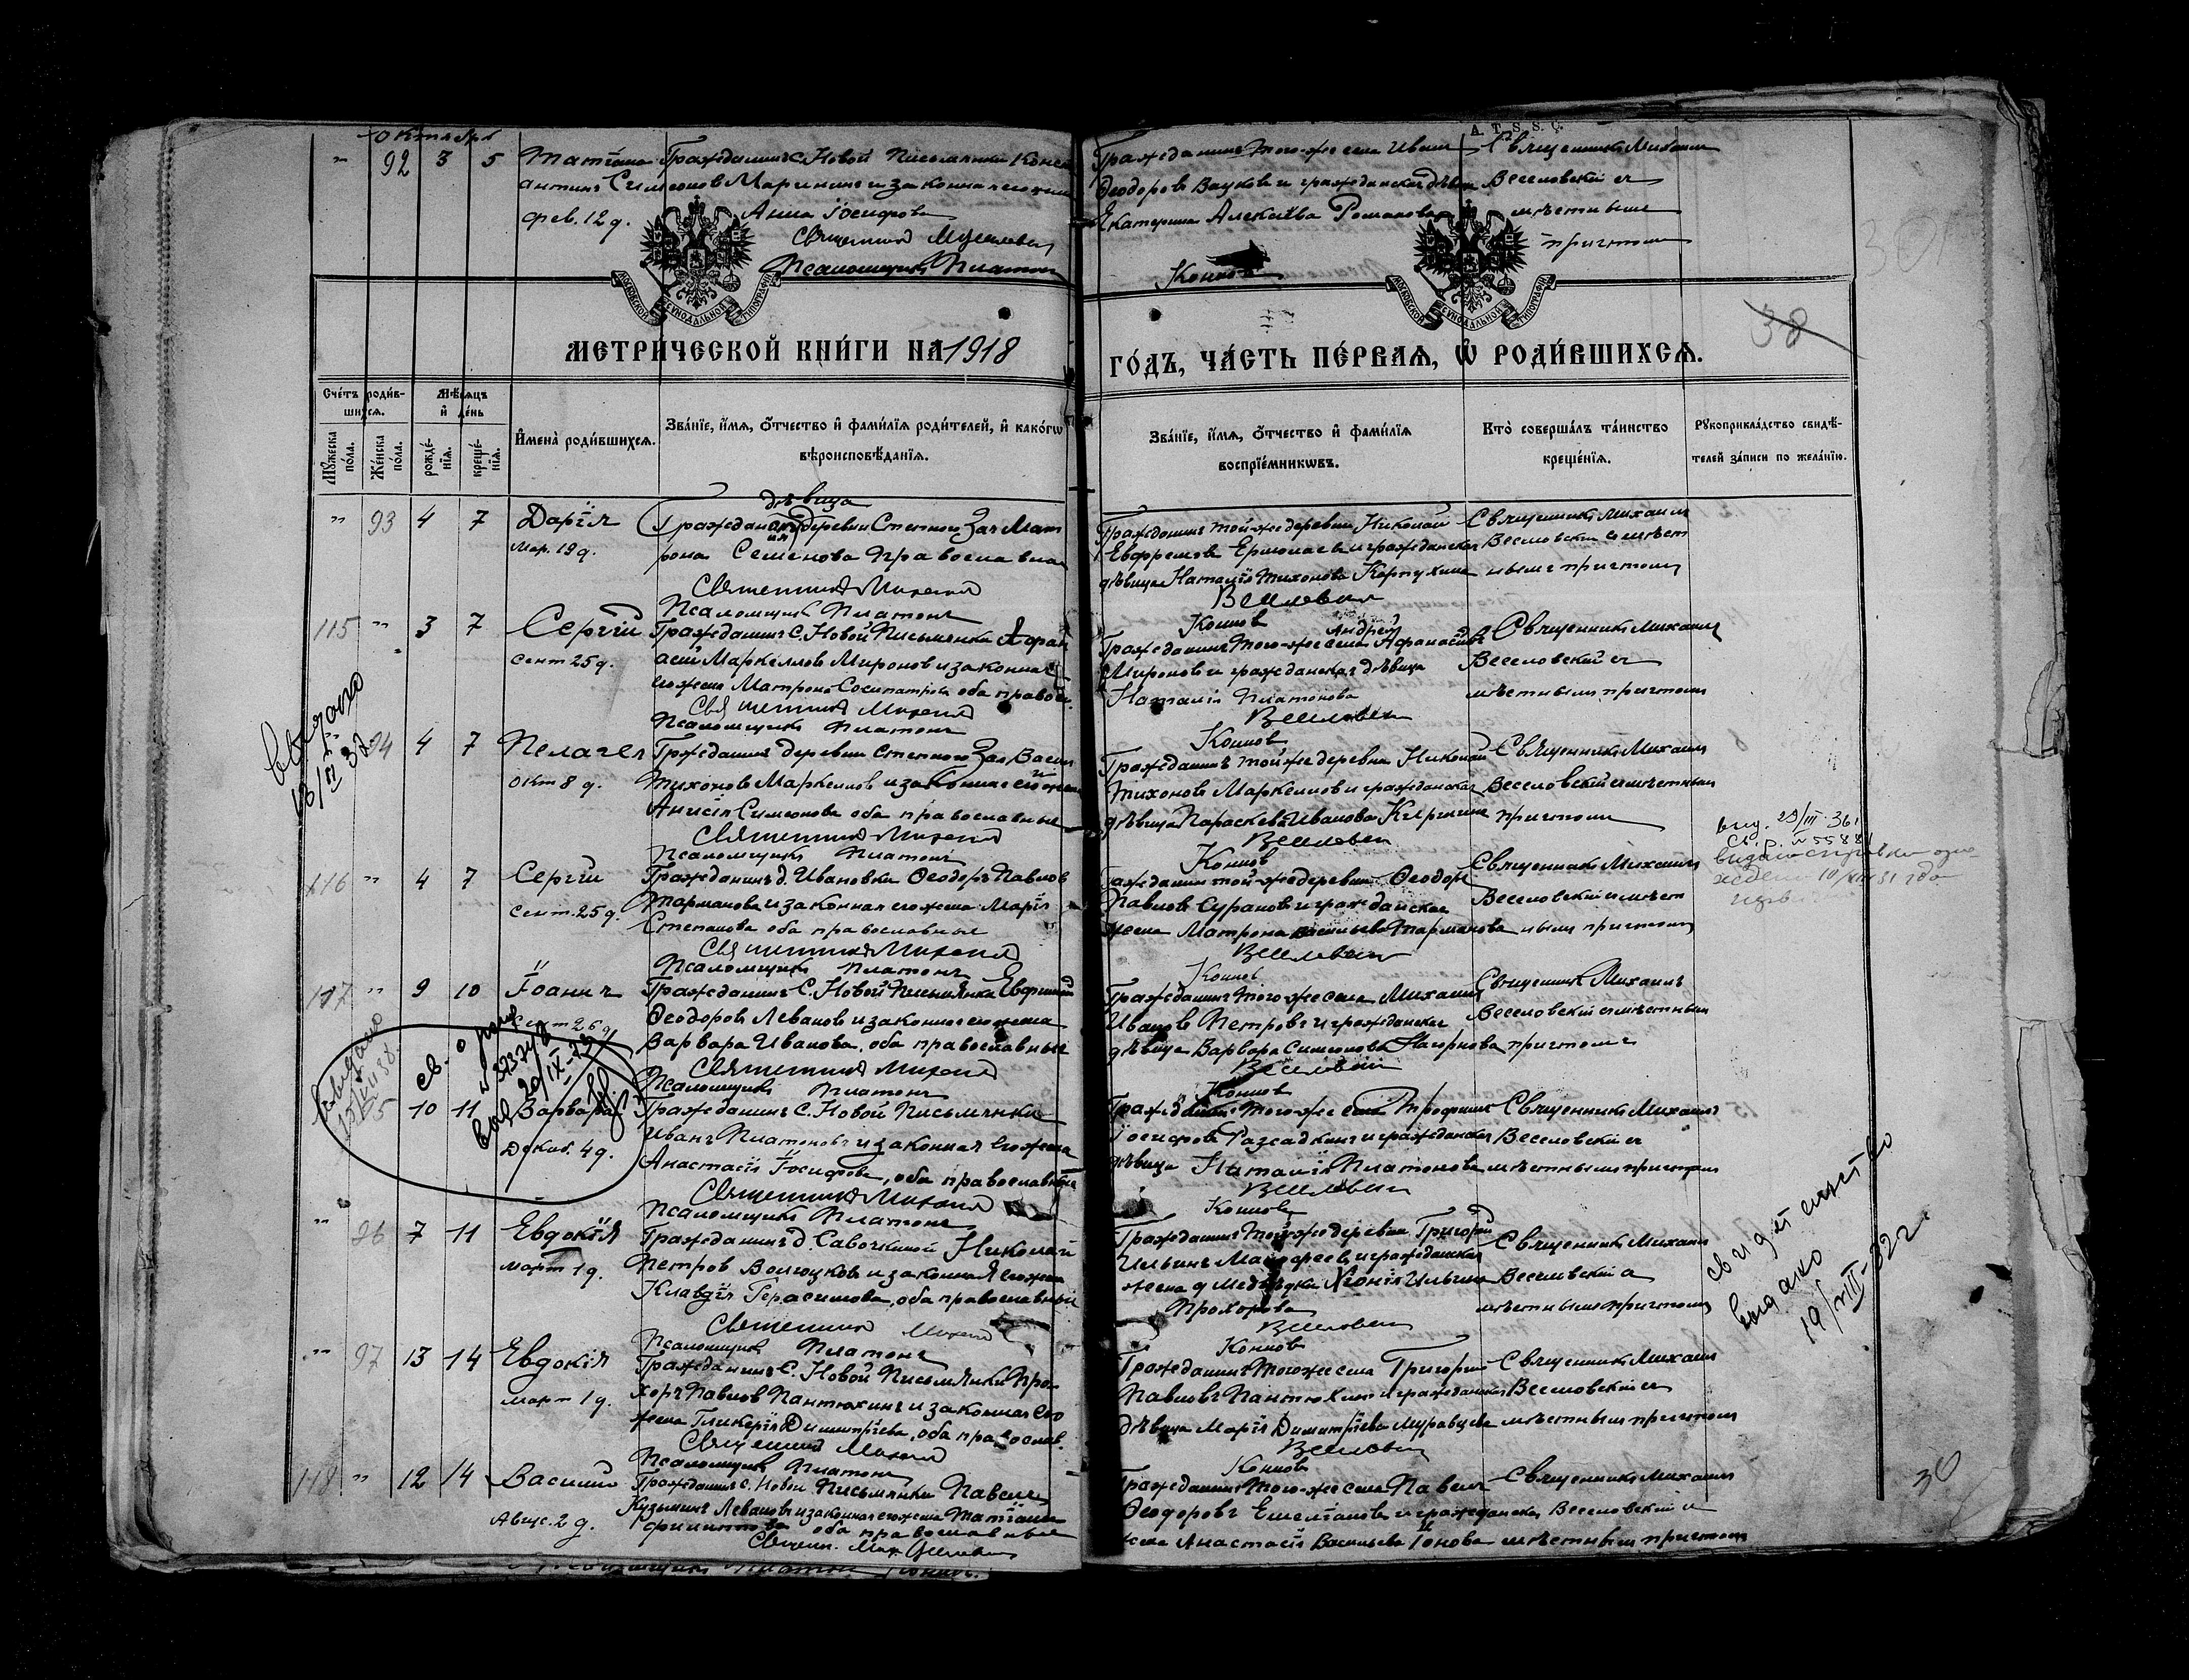 Октябрь
A. T. S. S. Ç.
" 92 3 5 Татiана Гражданинъ с. Новой Письмянки Конст
антинъ Симеоновъ Марининъ и законная его жена
фев. 12 д. Анна Iосифова
Священникъ М. Веселовскiй
Псаломщикъ Платонъ
Гражданинъ того-же села Иванъ
Ѳеодоровъ и гражданская дѣвица
Екатерина Алексѣева Романова
Коннов
Священникъ Михаилъ
Веселовскiй съ
мѣстнымъ
причтомъ
МОСКОВСКОЙ СѴНОДАЛЬНОЙ ТИПОГРАФIИ
МОСКОВСКОЙ СѴНОДАЛЬНОЙ ТИПОГРАФIИ
38
МЕТРИ́ЧЕСКОЙ КНИ́ГИ НА 1918
ГО́ДЪ, ЧА́СТЬ ПЕ́РВАѦ, Ѡ҆ РОДИ́ВШИХСѦ.
Сче́тъ роди́вшихсѧ.
Мѣ́сѧцъ и҆ де́нь
Мꙋ́жеска по́ла.
Же́нска по́ла.
рожде́нїѧ.
креще́нїѧ.
И҆мена̀ роди́вшихсѧ.
Зва́нїе, и҆́мѧ, ѻ҆́тчество и҆ фами́лїѧ роди́телей, и҆ како́гѡ
вѣроисповѣ́данїѧ.
Зва́нїе, и҆́мѧ, ѻ҆́тчество и҆ фами́лїѧ
воспрїе́мникѡвъ.
Кто̀ соверша́лъ та́инство
креще́нїѧ.
Рꙋкоприкла́дство свидѣ́телей за́писи по жела́нїю.
" 93 4 7 Дарiя
Мар. 19 д.
дѣвица
Гражданская деревни Степной Зай Мат
рона Семенова православная
Священникъ Михаилъ
Псаломщикъ Платонъ
Гражданинъ той-же деревни Николай
Евфремовъ Ермолаевъ и гражданская
дѣвица Наталiя Тихонова Карпухина
Веселовскiй
Коннов
Священникъ Михаилъ
Веселовскiй съ мѣст
нымъ причтомъ
115 " 3 7 Сергiй
сент 25 д.
Гражданинъ с. Новой Письмянки Афан
асiй Маркелловъ Мироновъ и законная
его жена Матрона Сосипатрова оба правос.
Священникъ Михаилъ
Псаломщикъ Платонъ
Андрей
Гражданинъ того-же села Афанасiевъ
Мироновъ и гражданская дѣвица
Наталiя Платонова
Веселовскiй
Коннов
Священникъ Михаилъ
Веселовскiй съ
мѣстнымъ причтомъ
выдано
" 94 4 7 Пелагея
окт 8 д.
Гражданинъ деревни Степной Зай Васил
Тихоновъ Маркелловъ и законная его жена
Анисiя Симеонова оба православные
Священникъ Михаилъ
Псаломщикъ Платонъ
Гражданинъ той же деревни Николай
Тихоновъ Маркелловъ и гражданская
дѣвица Параскева Иванова Киргина
Веселовскiй
Коннов
Священникъ Михаилъ
Веселовскiй съ мѣстнымъ
причтомъ
выд. 29/III 36.
116 " 4 7 Сергiй
сент. 25 д.
Гражданинъ д. Ивановки Ѳеодоръ Павлов
Тарманова и законная его жена Марiя
Степанова оба православные
Священникъ Михаилъ
Псаломщикъ Платонъ
Гражданин той-же деревни Ѳеодоръ
Павловъ Сурановъ и гражданская
жена Матрона Васильева Тарманова
Веселовскiй
Коннов
Священникъ Михаилъ
Веселовскiй съ мѣст
нымъ причтомъ
117 " 9 10 Iоаннъ
сент 26 д.
Гражданинъ с. Новой Письмянки Евфимiй
Ѳеодоровъ Левановъ и законная его жена
Варвара Иванова, оба православные
Священникъ Михаилъ
Псаломщикъ Платонъ
Гражданинъ того-же села Михаилъ
Ивановъ Петровъ и гражданская
дѣвица Варвара Симеонова Нагорнова
Веселовскiй
Коннов
Священникъ Михаилъ
Веселовскiй съ мѣстнымъ
причтомъ
выдано
св. о рожд
выд 20/IX
" 95 10 11 Варвара
Декаб. 4 д.
Гражданинъ с. Новой Письмянки
Иванъ Платоновъ и законная его жена
Анастасiя Iосифова, оба православные
Священникъ Михаилъ
Псаломщикъ Платонъ
Гражданинъ того-же села Трофимъ
Iосифовъ Разсадкинъ и гражданская
дѣвица Наталiя Платонова
Веселовскiй
Коннов
Священникъ Михаилъ
Веселовскiй съ
мѣстнымъ причтомъ
" 96 7 11 Евдокiя
март 1 д.
Гражданинъ д. Савочкиной Николай
Петров Волочков и законная его жена
Клавдiя Герасимова, оба православные
Священникъ Михаилъ
Псаломщикъ Платонъ
Гражданинъ той-же деревни Григорiй
Ильинъ и гражданская
жена д Медвѣдки Хiонiя Ильина
Прохорова
Веселовскiй
Коннов
Священникъ Михаилъ
Веселовскiй съ
мѣстнымъ причтомъ
свидетельство
выдано
19/VIII-32 г
" 97 13 14 Евдокiя
март 1 д.
Гражданинъ с. Новой Письмянки Про
хоръ Павловъ Пантюхинъ и законная его
жена Гликерiя Димитрiева, оба православ.
Священникъ Михаилъ
Псаломщикъ Платонъ
Гражданинъ того же села Григорiй
Павловъ Пантюхинъ и гражданская
дѣвица Марiя Димитрiева Муравцева
Веселовскiй
Коннов
Священникъ Михаилъ
Веселовскiй съ
мѣстнымъ причтомъ
118 " 12 14 Василiй
Авгус. 2 д.
Гражданинъ с. Новой Письмянки Павелъ
Кузьминъ Левановъ и законная его жена Татiана
Филиппова оба православные
Священ. Мих. Веселовскiй
Псаломщикъ Платонъ Коннов.
Гражданинъ того-же села Павелъ
Ѳеодоровъ Емелiановъ и гражданская
жена Анастасiя Васильева Iонова
Священникъ Михаилъ
Веселовскiй съ
мѣстнымъ причтомъ